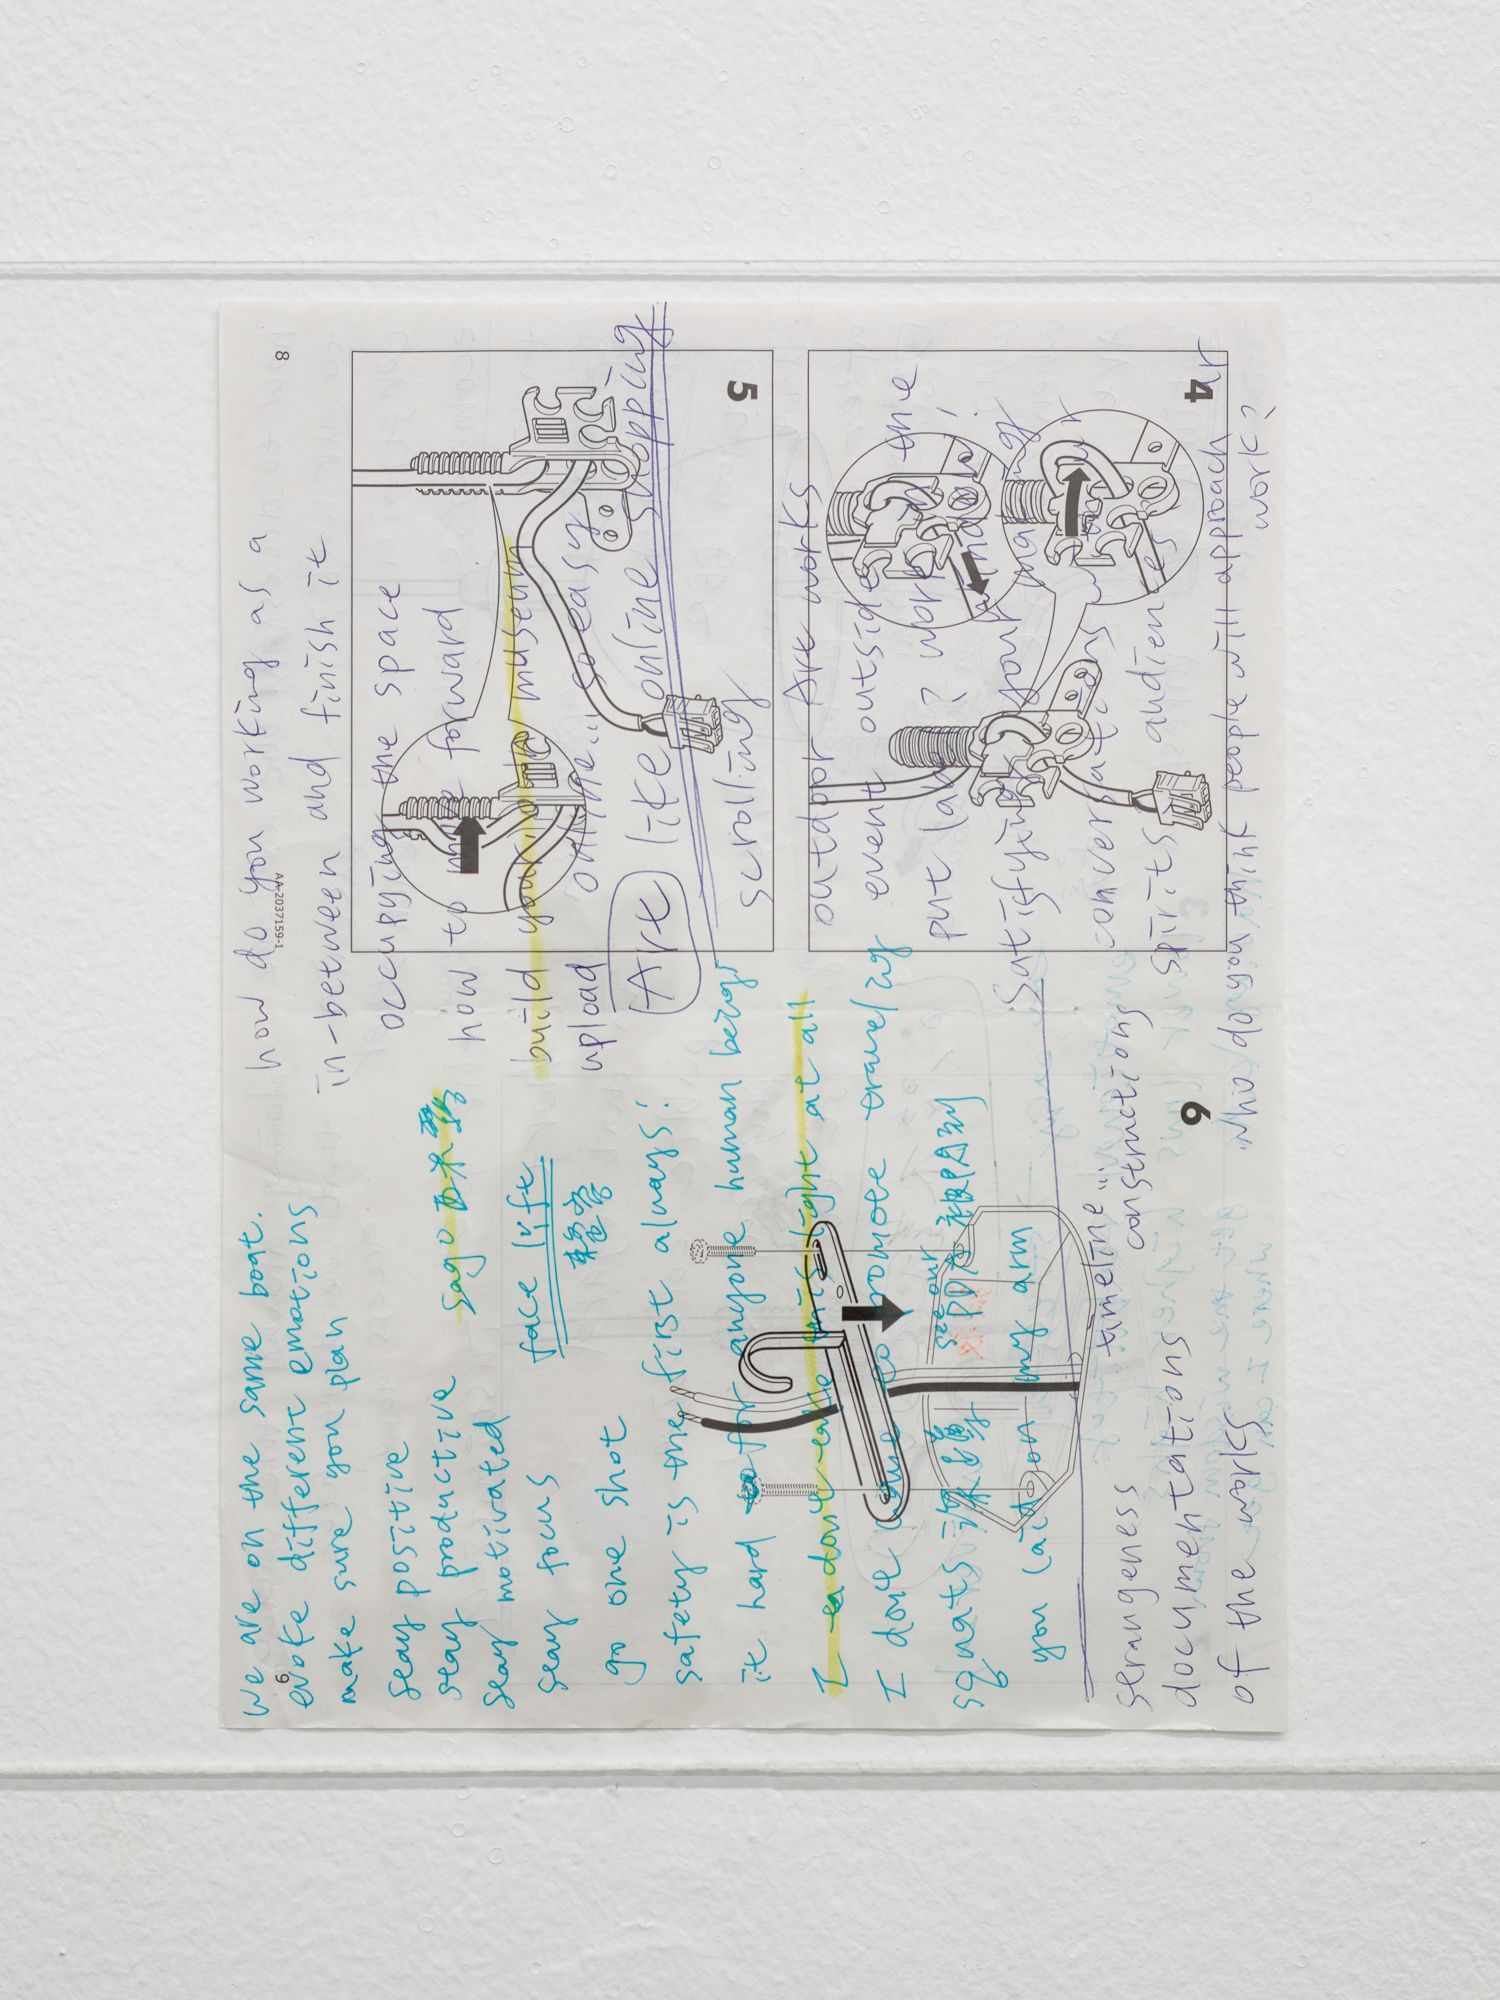 we are on the same boat.
evoke different emotions
make sure you plan
stay positive
stay productive
stay motivated
stay focus
sago
face life
go one shot
safety is the first always!
it hard for anyone human being
this right at all
I dont to promote traveling
squats see our
you laid on my arm
how do you working as a
in-between and finish it
occupying the space
how to move forward
build your museum
upload online... so easy
Art like online shopping
scrolling
outdoor Art works
event outside the
put and? work window!
Satisfying your making
conversations
spirits audiences
who do you think people will approach
work?
timeline"
constructions
strangeness
documentations
of the works
4
5
6
8
9
AA-2037159-1